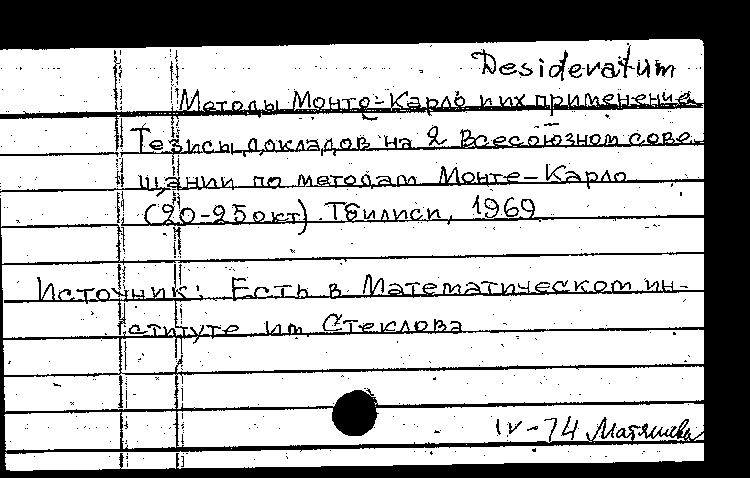 Desideratum
Методы Монте-Карло и их применение
Тезисы докладов на 2 Всесоюзном сове-
щании по методам Монте-Карло
(20-25 окт) Тбилиси, 1969
Источник: Есть в Математическом ин-
ституте им Стеклова
IV-74